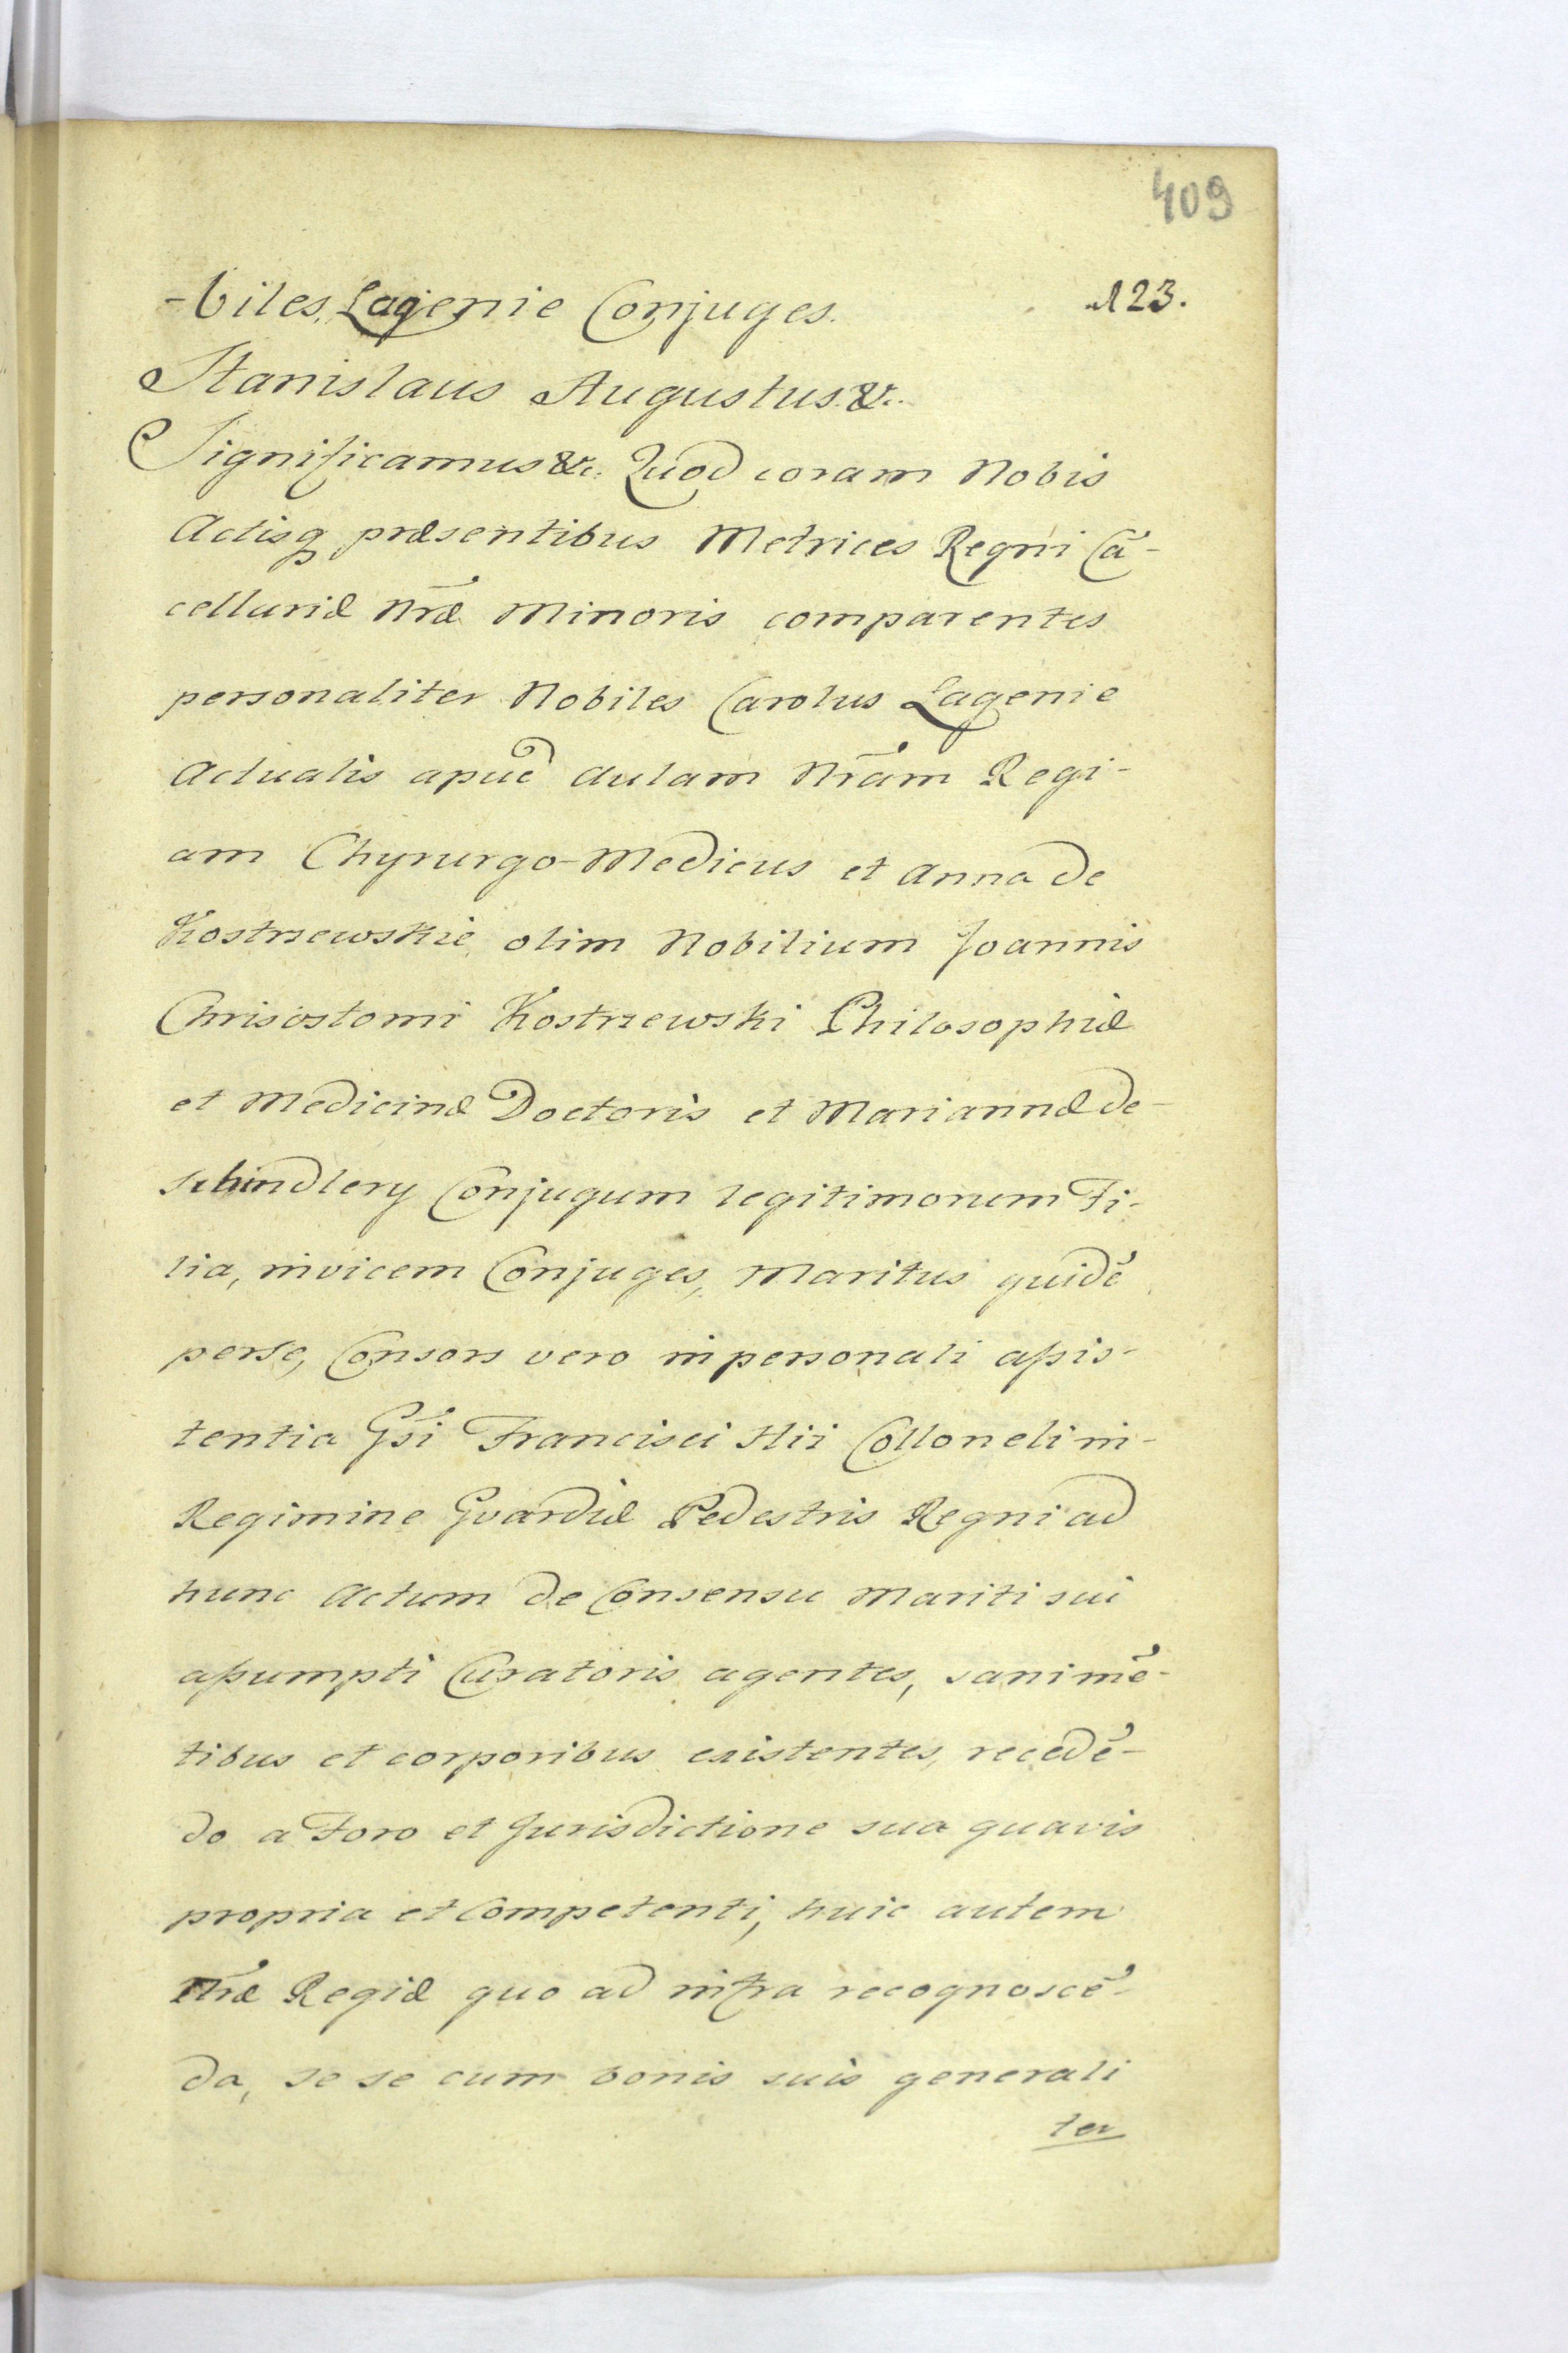 409
-biles, Lagenie Conjuges. 123.
Stanislaus Augustus &c.
Significamus &c. Quod coram Nobis
Actisq præsentibus Metrices Regni Cā-
cellariæ Nræ Minoris comparentes
personaliter Nobiles Carolus Lagenie
Actualis apud Aulam Nrām Regi-
am Chyrurgo-Medicus et Anna de
Kostrzewskie, olim Nobilium Joannis
Chrisostomi Kostrzewski Philosophiæ
et Medicinæ Doctoris et Mariannæ de-
Schindlery Conjugum legitimorum Fi-
lia, invicem Conjuges, Maritus quidē
perse, Consors vero in personali assis-
tentia Gsi Francisci Hii Colloneli in-
Regimine Gvardiæ Pedestris Regni ad
hunc Actum de Consensu Mariti sui
assumpti Curatoris agentes, sani mē-
tibus et corporibus existentes, recedē-
do a Foro et Jurisdictione sua quavis
propria et Competenti, huic autem
Nræ Regiæ quo ad infra recognoscē-
da, se se cum bonis suis generali
ter